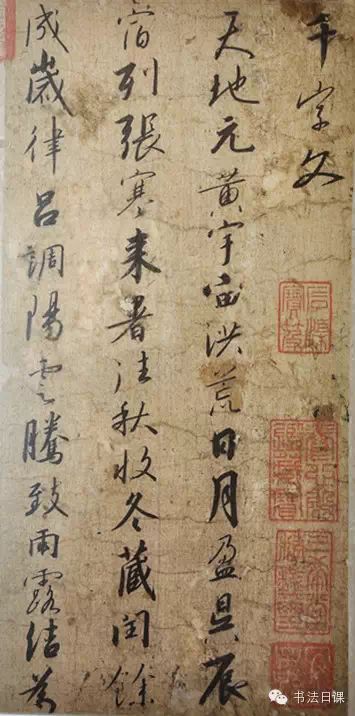 千字文
天地元黄宇宙洪荒日月盈昃辰
宿列張寒来暑往秋收冬藏閏餘
成歲律吕調陽雲騰致雨露結為
书法日课